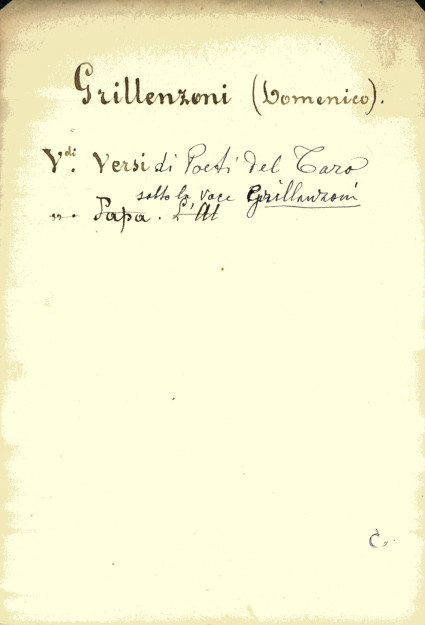 Grillenzoni (Domenico).
Vdi. Versi di Poeti del Taro
sotto la voce Grillenzoni
„. Papa. L'Al
C„.